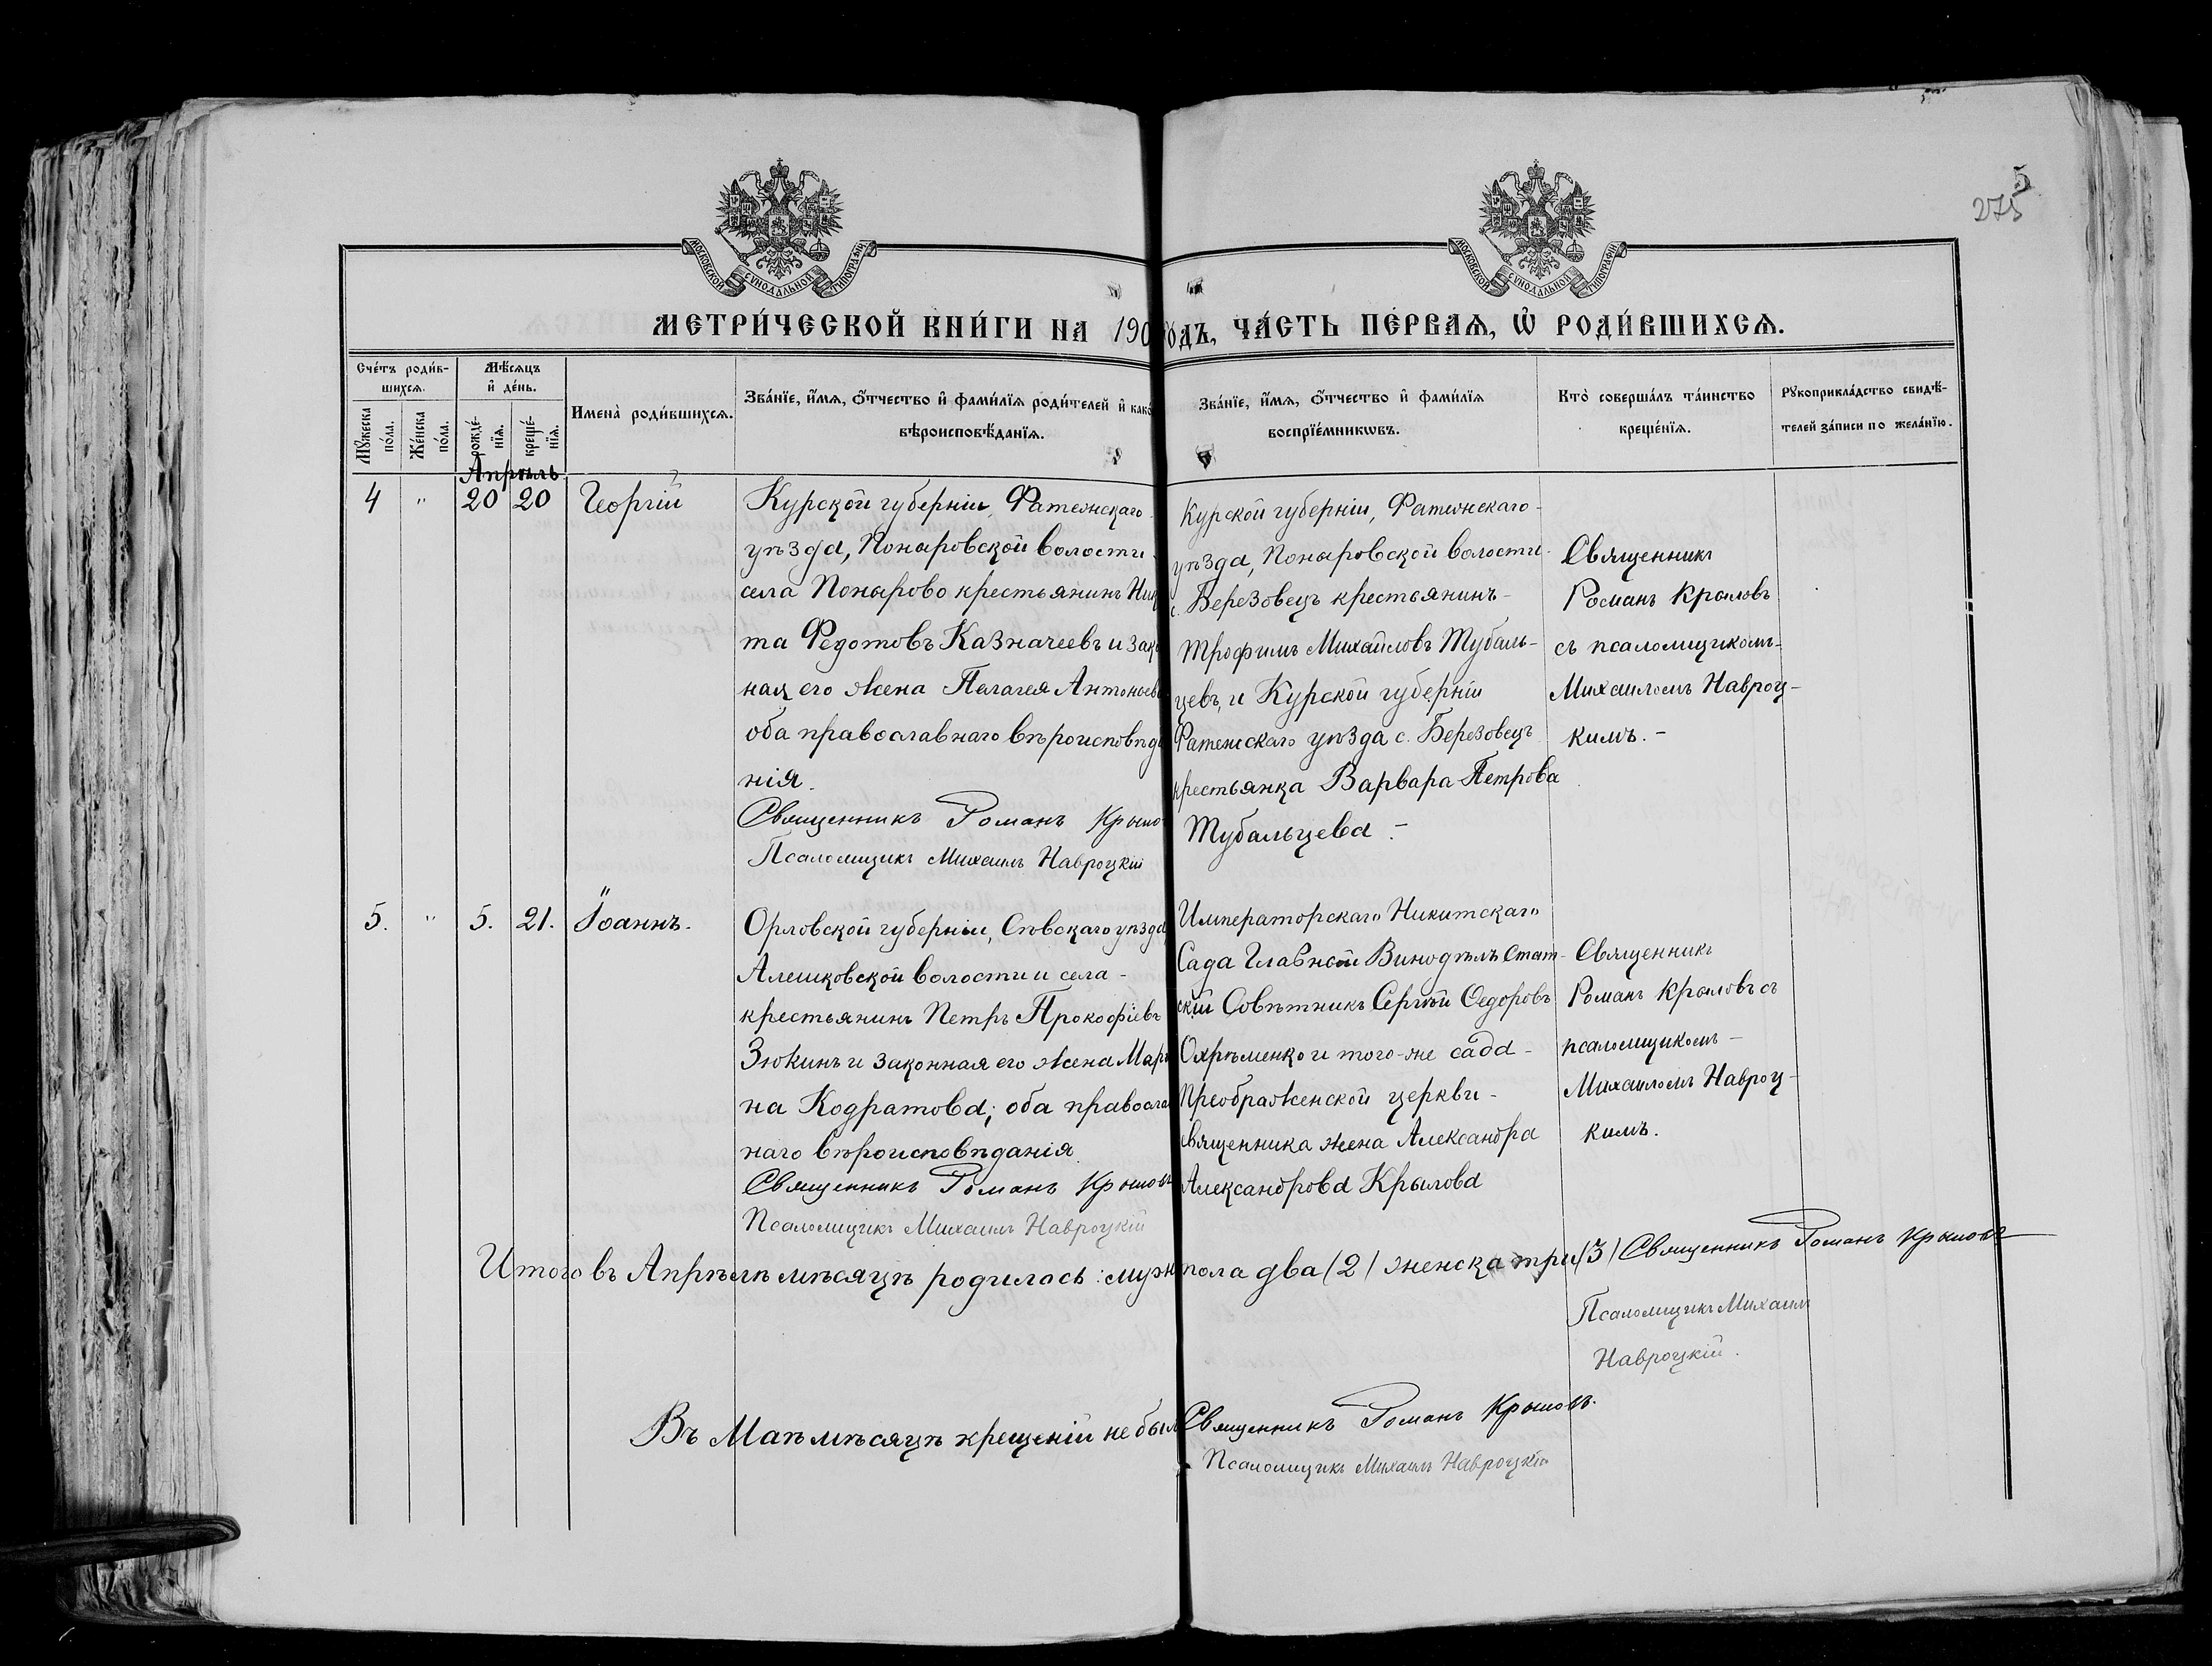 5
275
МОСКОВСКОЙ СѴНОДАЛЬНОЙ ТИПОГРАФІИ
МОСКОВСКОЙ СѴНОДАЛЬНОЙ ТИПОГРАФІИ
МЕТРИ́ЧЕСКОЙ КНИ́ГИ НА 190 ГОДЪ, ЧА́СТЬ ПЕ́РВАѦ, Ѡ҆ РОДИ́ВШИХСѦ.
Сче́тъ роди́в-
шихсѧ.
Мѣ́сѧцъ
и҆ де́нь.
Мꙋ́жеска по́ла.
Же́нска по́ла.
рожде́-нїѧ.
креще́-нїѧ.
Имена̀ роди́вшихсѧ.
Зва́нїе, и҆́мѧ, ѻ҆́тчество и҆ фами́лїѧ роди́телей и҆ како
вѣроисповѣ́данїѧ.
Зва́нїе, и҆́мѧ, ѻ҆́тчество и҆ фами́лїѧ
воспрїе́мникѡвъ.
Кто̀ соверша́лъ та́инство
креще́нїѧ.
Рꙋкоприкла́дство свидѣ́-
телей за́писи по жела́нїю.
Апрѣль
4 " 20 20 Георгій
Курской губерніи, Фатежскаго
уѣзда, Поныровской волости
села Понырово крестьянинъ Ник
та Федотовъ Казначеевъ и зак
ная его жена Пелагея Антоньев
оба православнаго вѣроисповѣда
нія.
Священникъ Романъ Крыло
Псаломщикъ Михаилъ Навроцкій
Курской губерніи, Фатежскаго -
уѣзда, Поныровской волости -
с. Березовецъ крестьянинъ -
Трофимъ Михайловъ Тубаль-
цевъ, и Курской губерніи
Фатежскаго уѣзда с. Березовецъ
крестьянка Варвара Петрова
Тубальцева. -
Священникъ
Романъ Крыловъ
съ псаломщикомъ -
Михаиломъ Навроц-
кимъ. -
5. " 5. 21. Іоаннъ.
Орловской губерніи, Сѣвскаго уѣзда,
Алешковской волости и села -
крестьянинъ Петръ Прокофіевъ
Зюкинъ и законная его жена Мари
на Кодратова; оба правосла
наго вѣроисповѣданія.
Священникъ Романъ Крыловъ
Псаломщикъ Михаилъ Навроцкій
Императорскаго Никитскаго
Сада Главной Винодѣлъ Стат-
скій Совѣтникъ Сергѣй Федоровъ
Охрѣменко и того-же сада -
Преображенской церкви -
священника жена Александра
Александрова Крылова
Священникъ
Романъ Крыловъ съ
псаломщикомъ -
Михаиломъ Навроц-
кимъ.
Итого въ Апрѣлѣ мѣсяцѣ родилось: муж пола два (2) женска три (3) Священникъ Романъ Крыловъ
Псаломщикъ Михаилъ
Навроцкій.
Въ Маѣ мѣсяцѣ крещеній не был Священникъ Романъ Крыловъ.
Псаломщикъ Михаилъ Навроцкій